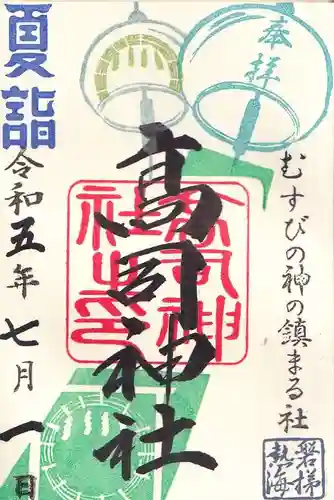 奉拝
むすびの神の鎮まる社
磐梯
熱海
高司神社
高司神
社之印
夏詣
令和五年七月一日